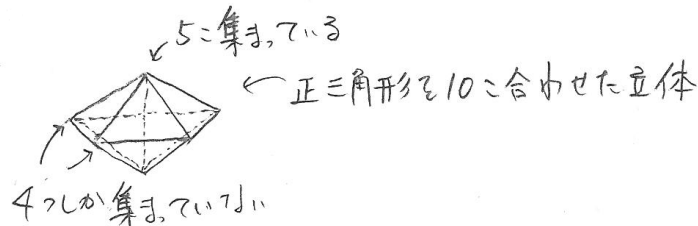 5こ集まっている
正三角形を10こ合わせた立体
4つしか集まっていない